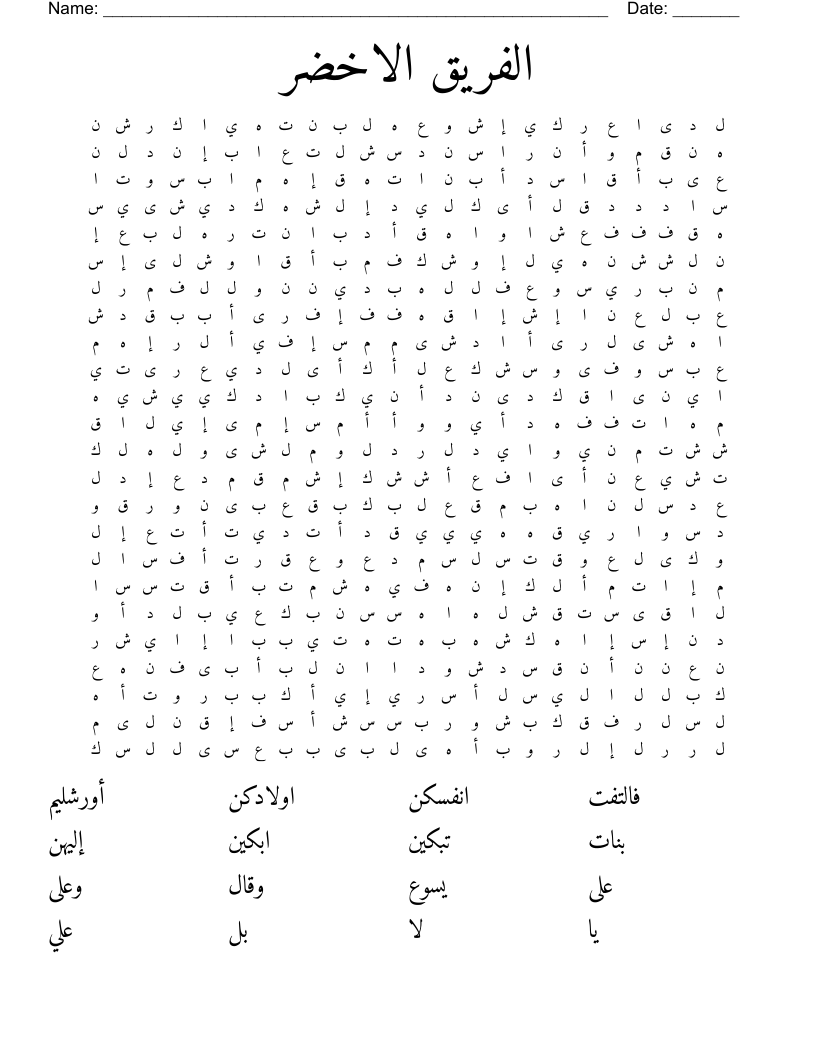 Name: ______________________________________________________ Date: _______
الفريق الاخضر
ل د ى ا ع ر ك ي إ ش و ع ه ل ب ن ت ه ي ا ك ر ش ن
ه ن ق م و أ ن ر ا س ن د س ش ل ت ع ا ب إ ن د ل ن
ع ى ب أ ق ا س د أ ب ن ا ت ه ق إ ه م ا ب س و ت ا
س ا د د د ق ل أ ى ك ل ي د إ ل ش ه ك د ي ش ى ي س
ه ق ف ف ف ع ش ا و ا ه ق أ د ب ا ن ت ر ه ل ب ع إ
ن ل ش ش ن ه ي ل إ و ش ك ف م ب أ ق ا و ش ل ى إ س
م ن ب ر ي س و ع ف ل ل ه ب د ي ن ن و ل ل ف م ر ل
ع ب ل ع ن ا إ ش إ ا ق ه ف ف إ ف ر ى أ ب ب ق د ش
ا ه ش ى ل ر ى أ ا د ش ى م م س إ ف ي أ ل ر إ ه م
ع ب س و ف ى و س ش ك ع ل أ ك أ ى ل د ي ع ر ى ت ي
ا ي ن ى ا ق ك د ى ن د أ ن ي ك ب ا د ك ي ي ش ي ه
م ه ا ت ف ف ه د أ ي و و أ أ م س إ م ى إ ي ل ا ق
ش ش ت م ن ي و ا ي د ل ر د ل و م ل ش ى و ل ه ل ك
ت ش ي ع ن أ ى ا ف ع أ ش ش ك إ ش م ق م د ع إ د ل
ع د س ل ن ا ه ب م ق ع ل ب ك ب ق ع ب ى ن و ر ق و
د س و ا ر ي ق ه ه ي ي ي ق د أ ت د ي ت أ ت ع إ ل
و ك ى ل ع و ق ت س ل س م د ع و ع ق ر ت أ ف س ا ل
م إ ا ت م أ ل ك إ ن ه ف ي ه ش م ت ب أ ق ت س س ا
ل ا ق ى س ت ق ش ل ه ا ه س س ن ب ك ع ي ب ل د أ و
د ن إ س إ ا ه ك ش ه ب ه ت ه ت ي ب ب ا إ ا ي ش ر
ن ع ن ن أ ن ق س د ش و د ا ا ن ل ب أ ب ى ف ن ه ع
ك ب ل ل ا ل ي س ل أ س ر ي إ ي أ ك ب ب ر و ت أ ه
ل س ل ر ف ق ك ب ش و ر ب س س ش أ س ف إ ق ن ل ى م
ل ر ر ل إ ل ر و ب أ ه ى ل ب ى ب ب ع س ى ل ل س ك
فالتفت انفسكن اولادكن أورشليم
بنات تبكين ابكين إليهن
على يسوع وقال وعلى
يا لا بل علي